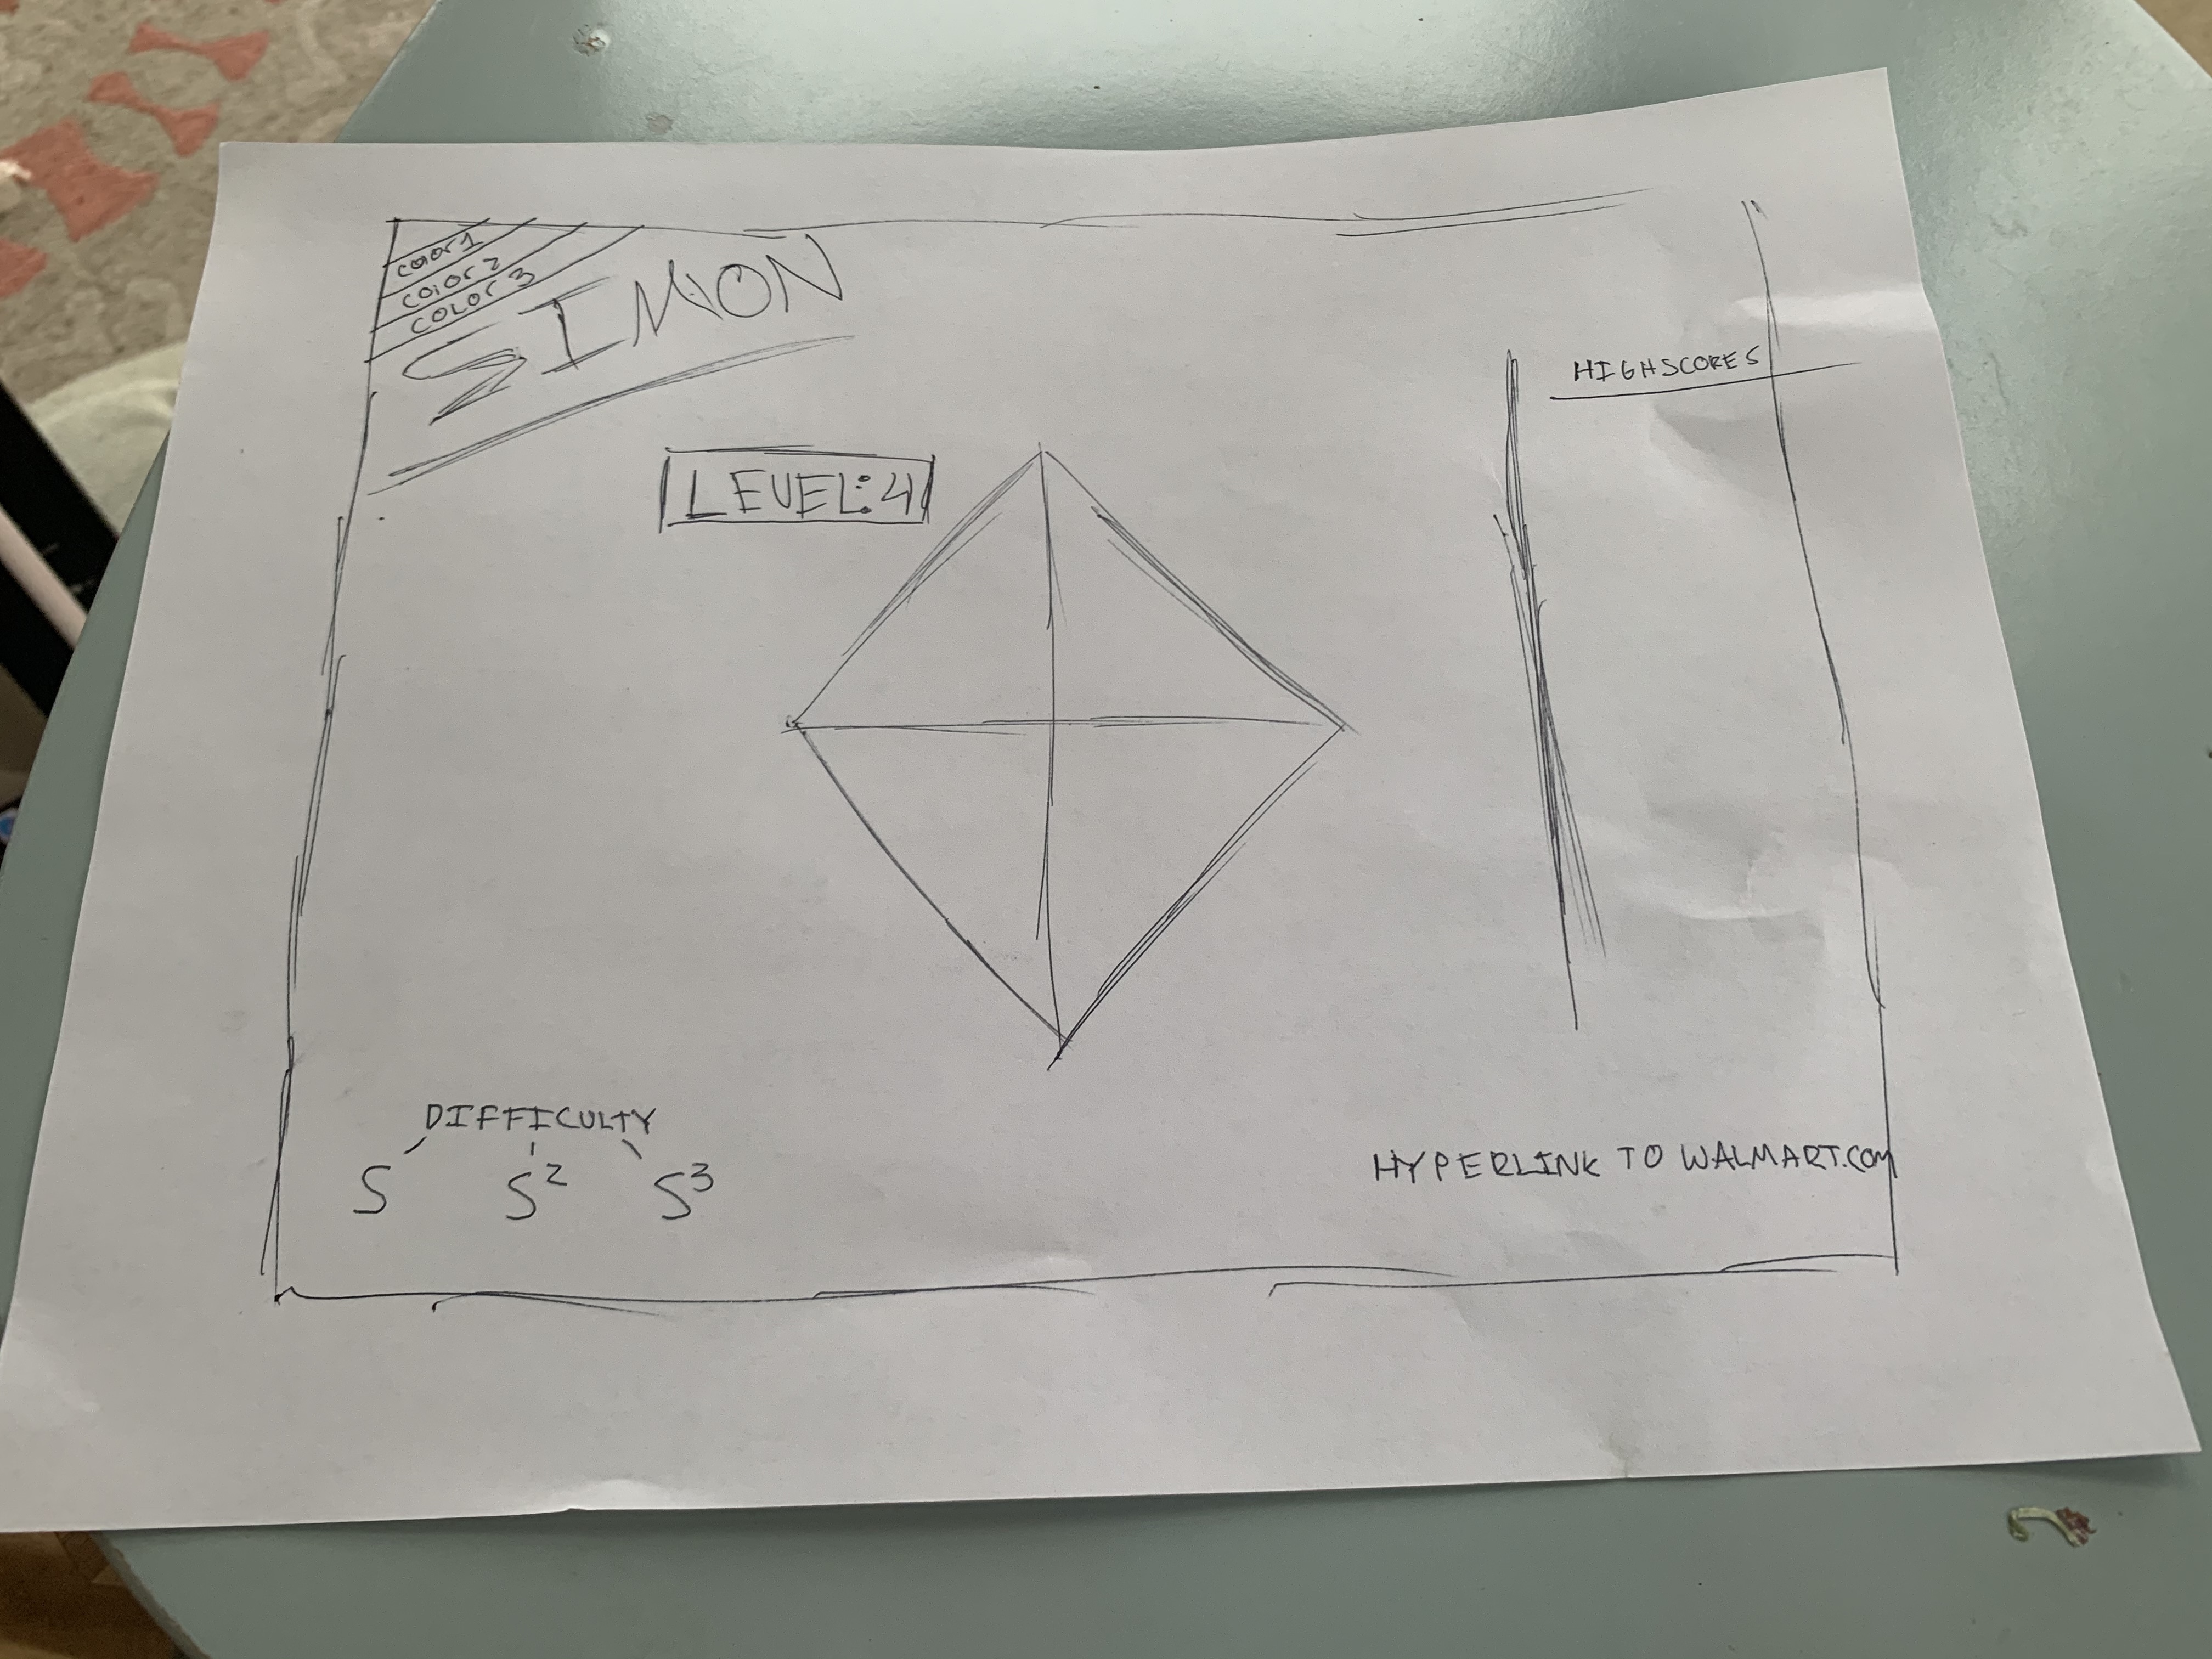 COLOR 1
COLOR 2
COLOR 3
SIMON
HIGHSCORES
LEVEL: 4
DIFFICULTY
S S² S³
HYPERLINK TO WALMART.COM